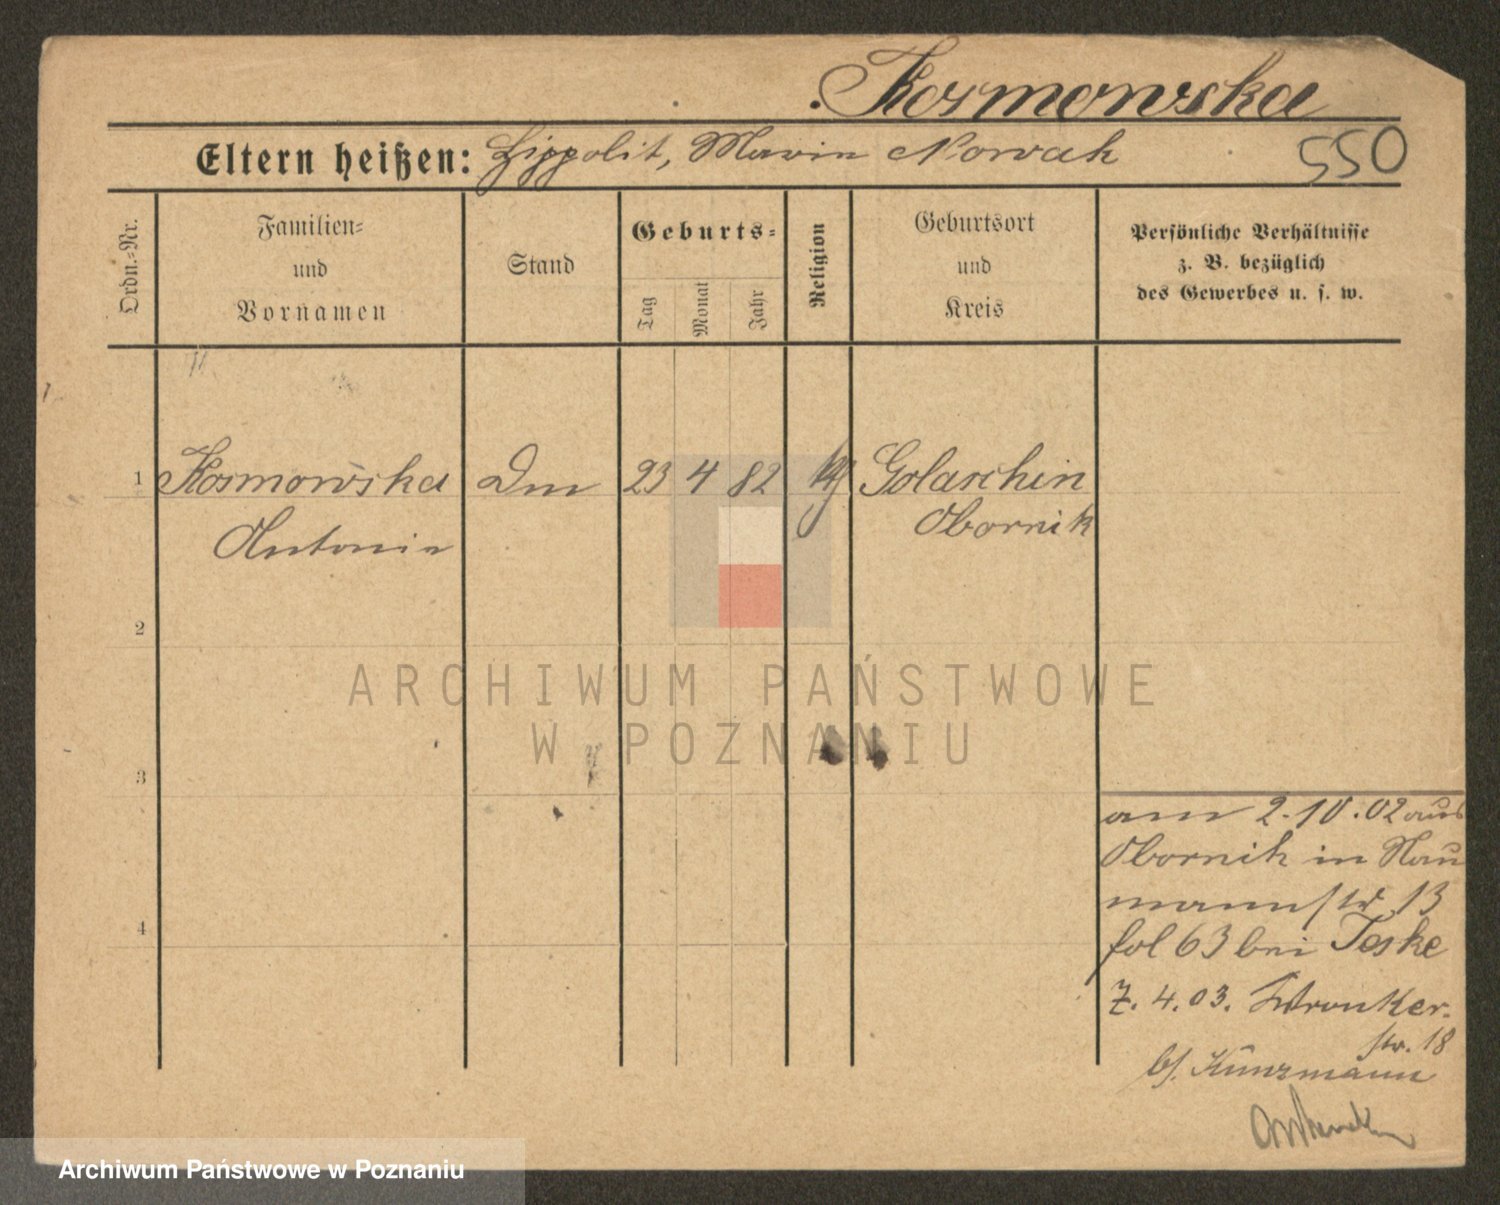 Kosmowska
Eltern heißen: Hippolit, Maria Nowak 550
Ordn.=Nr.
Familien=
und
Vornamen
Stand
Geburts=
Tag
Monat
Jahr
Religion
Geburtsort
und
Kreis
Persönliche Verhältnisse
z. B. bezüglich
des Gewerbes u. s. w.
1 Kosmowska Dm 23 4 82 Golaschin
Antonie Obornik
2
3
4
am 2.10.02 aus
Obornik in Nau
mannstr 13
fol 63 bei Teske
7. 4. 03. Wronker-
str. 18
bei Kunzmann
ARCHIWUM PAŃSTWOWE
W POZNANIU
Archiwum Państwowe w Poznaniu